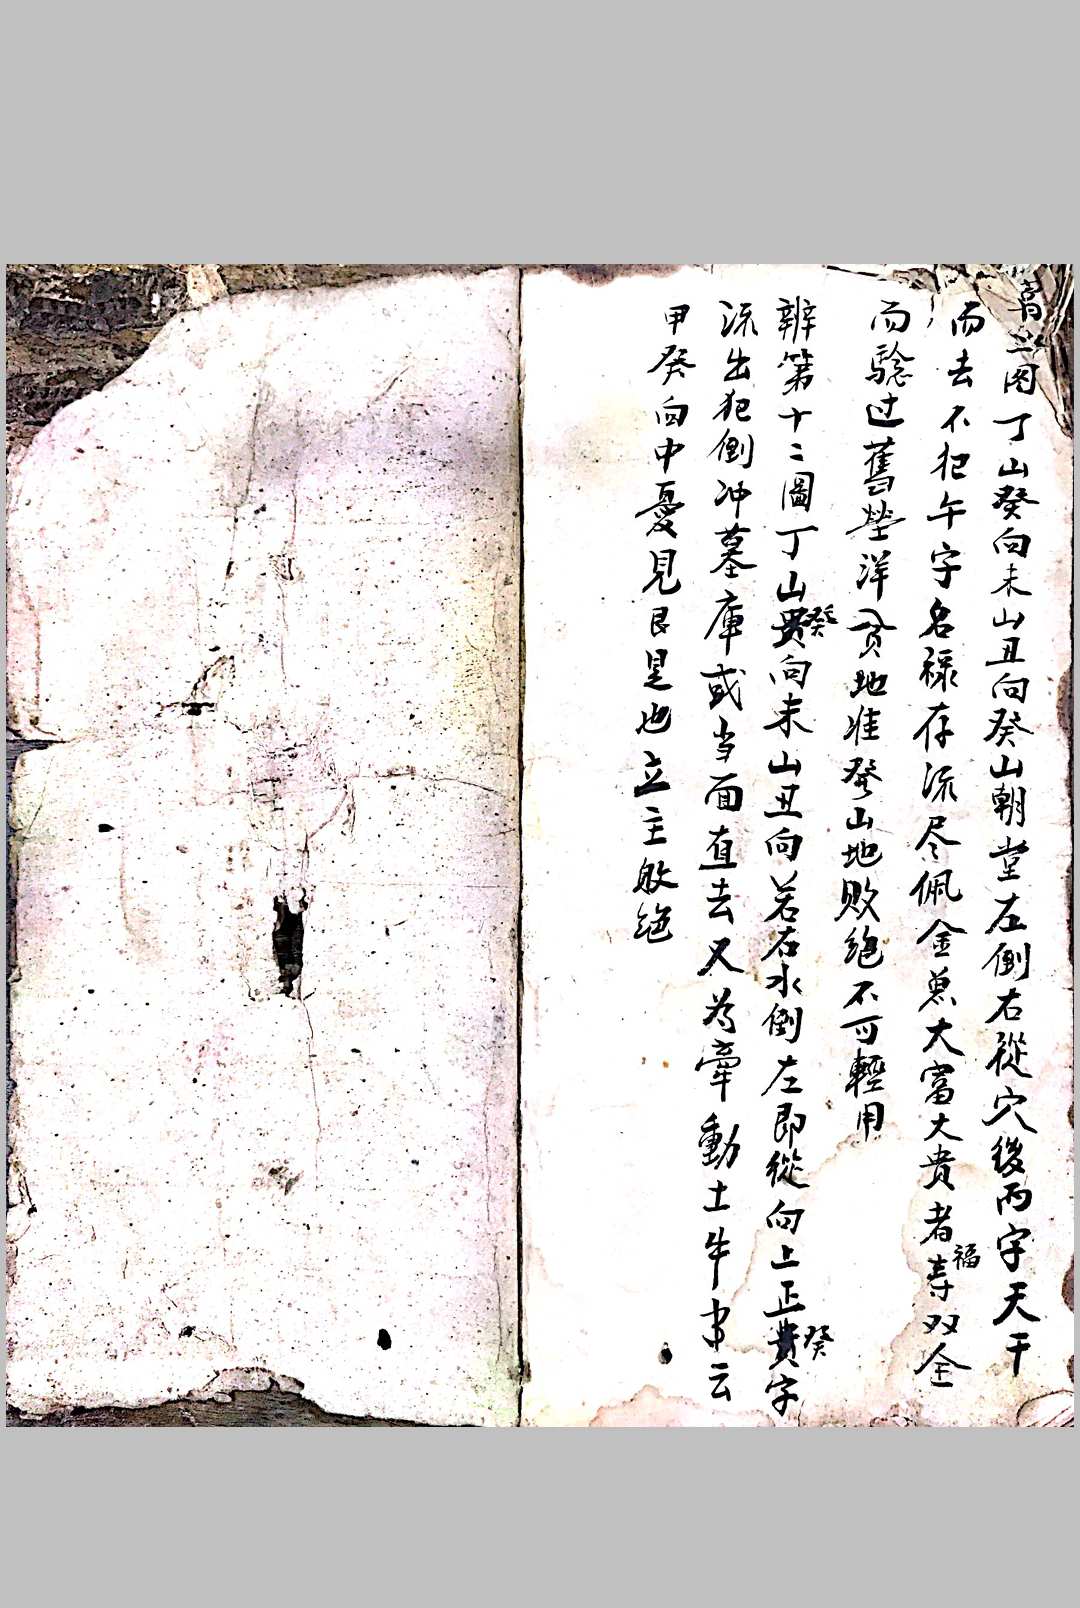 丁山癸向未山丑向癸山朝堂左倒右從穴後丙字天干
而去不犯午字名禄存流尽佩金魚大富大贵者寿福双全
而騐过舊坐洋貧地准發山地败绝不可輕用
辨第十二圖丁山貴癸向未山丑向若右水倒左即從向上正費癸字
流出犯倒冲墓庫或当面直去又為牽動土牛中云
甲癸向中憂見艮是也立主敗绝